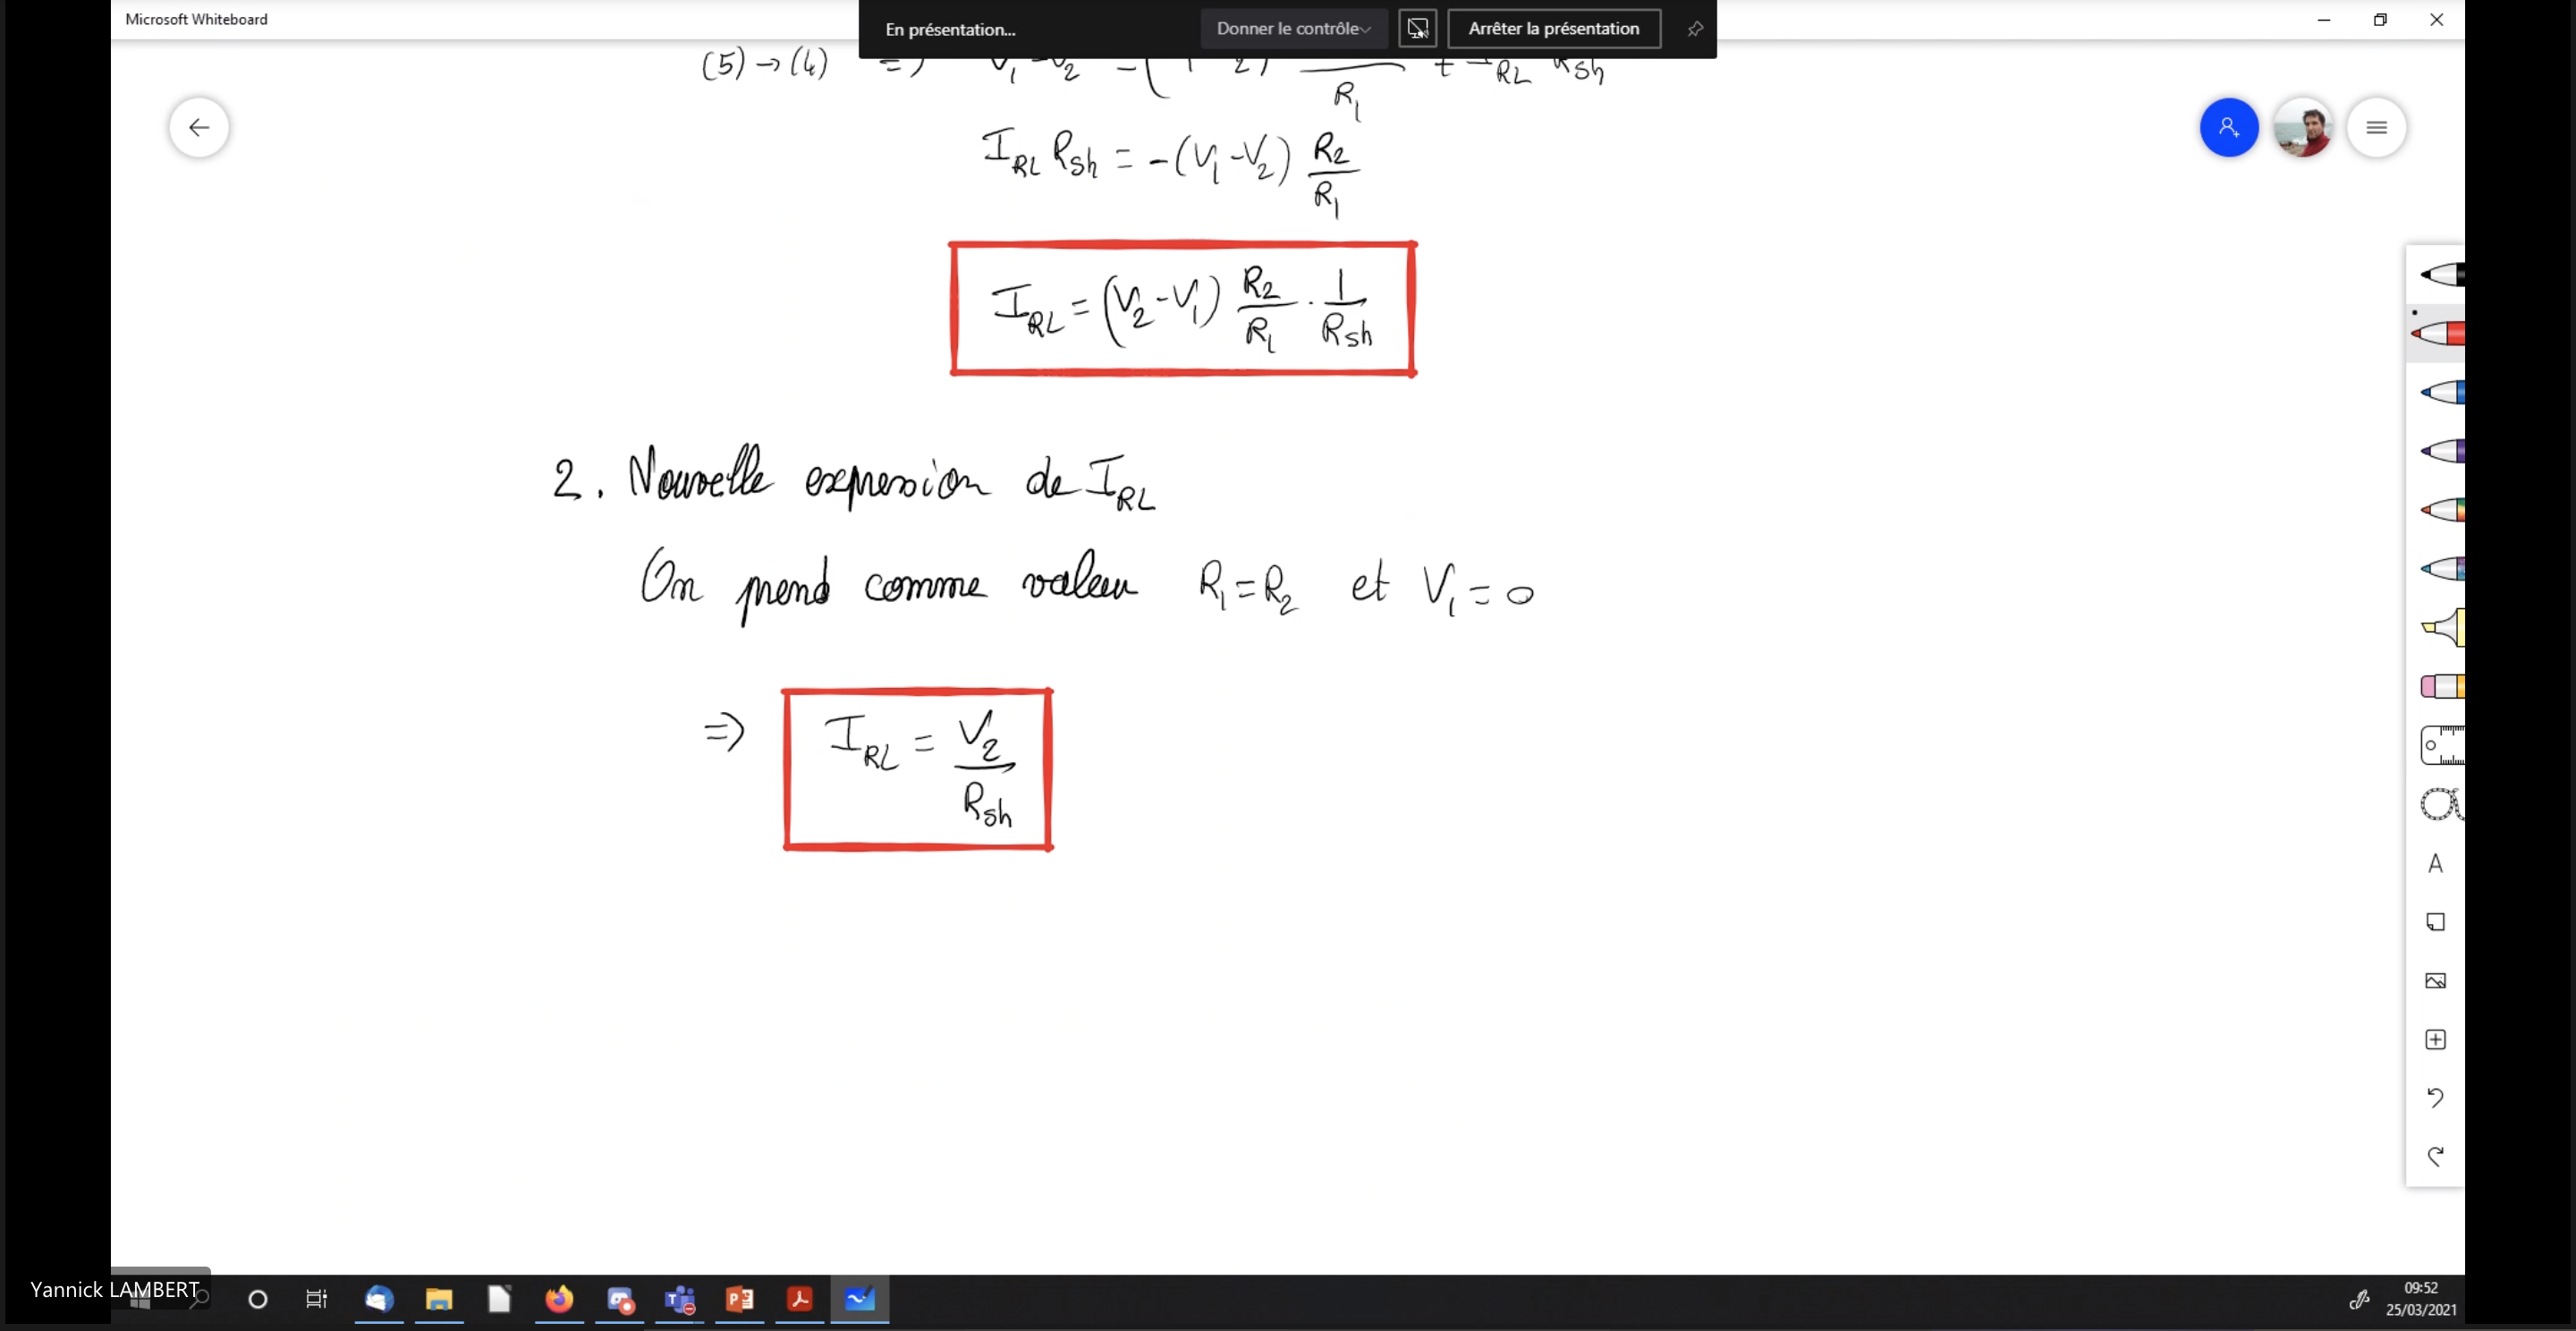 Microsoft Whiteboard
En présentation...
Donner le contrôle
Arrêter la présentation
(5) → (4) =) V₁ - V₂ = ( R₁ + I_RL R_sh
I_RL R_sh = -(V₁ - V₂) R₂/R₁
I_RL = (V₂ - V₁) R₂/R₁ . 1/R_sh
2. Nouvelle expression de I_RL
On prend comme valeur R₁ = R₂ et V₁ = 0
=) I_RL = V₂/R_sh
A
Yannick LAMBERT
09:52
25/03/2021